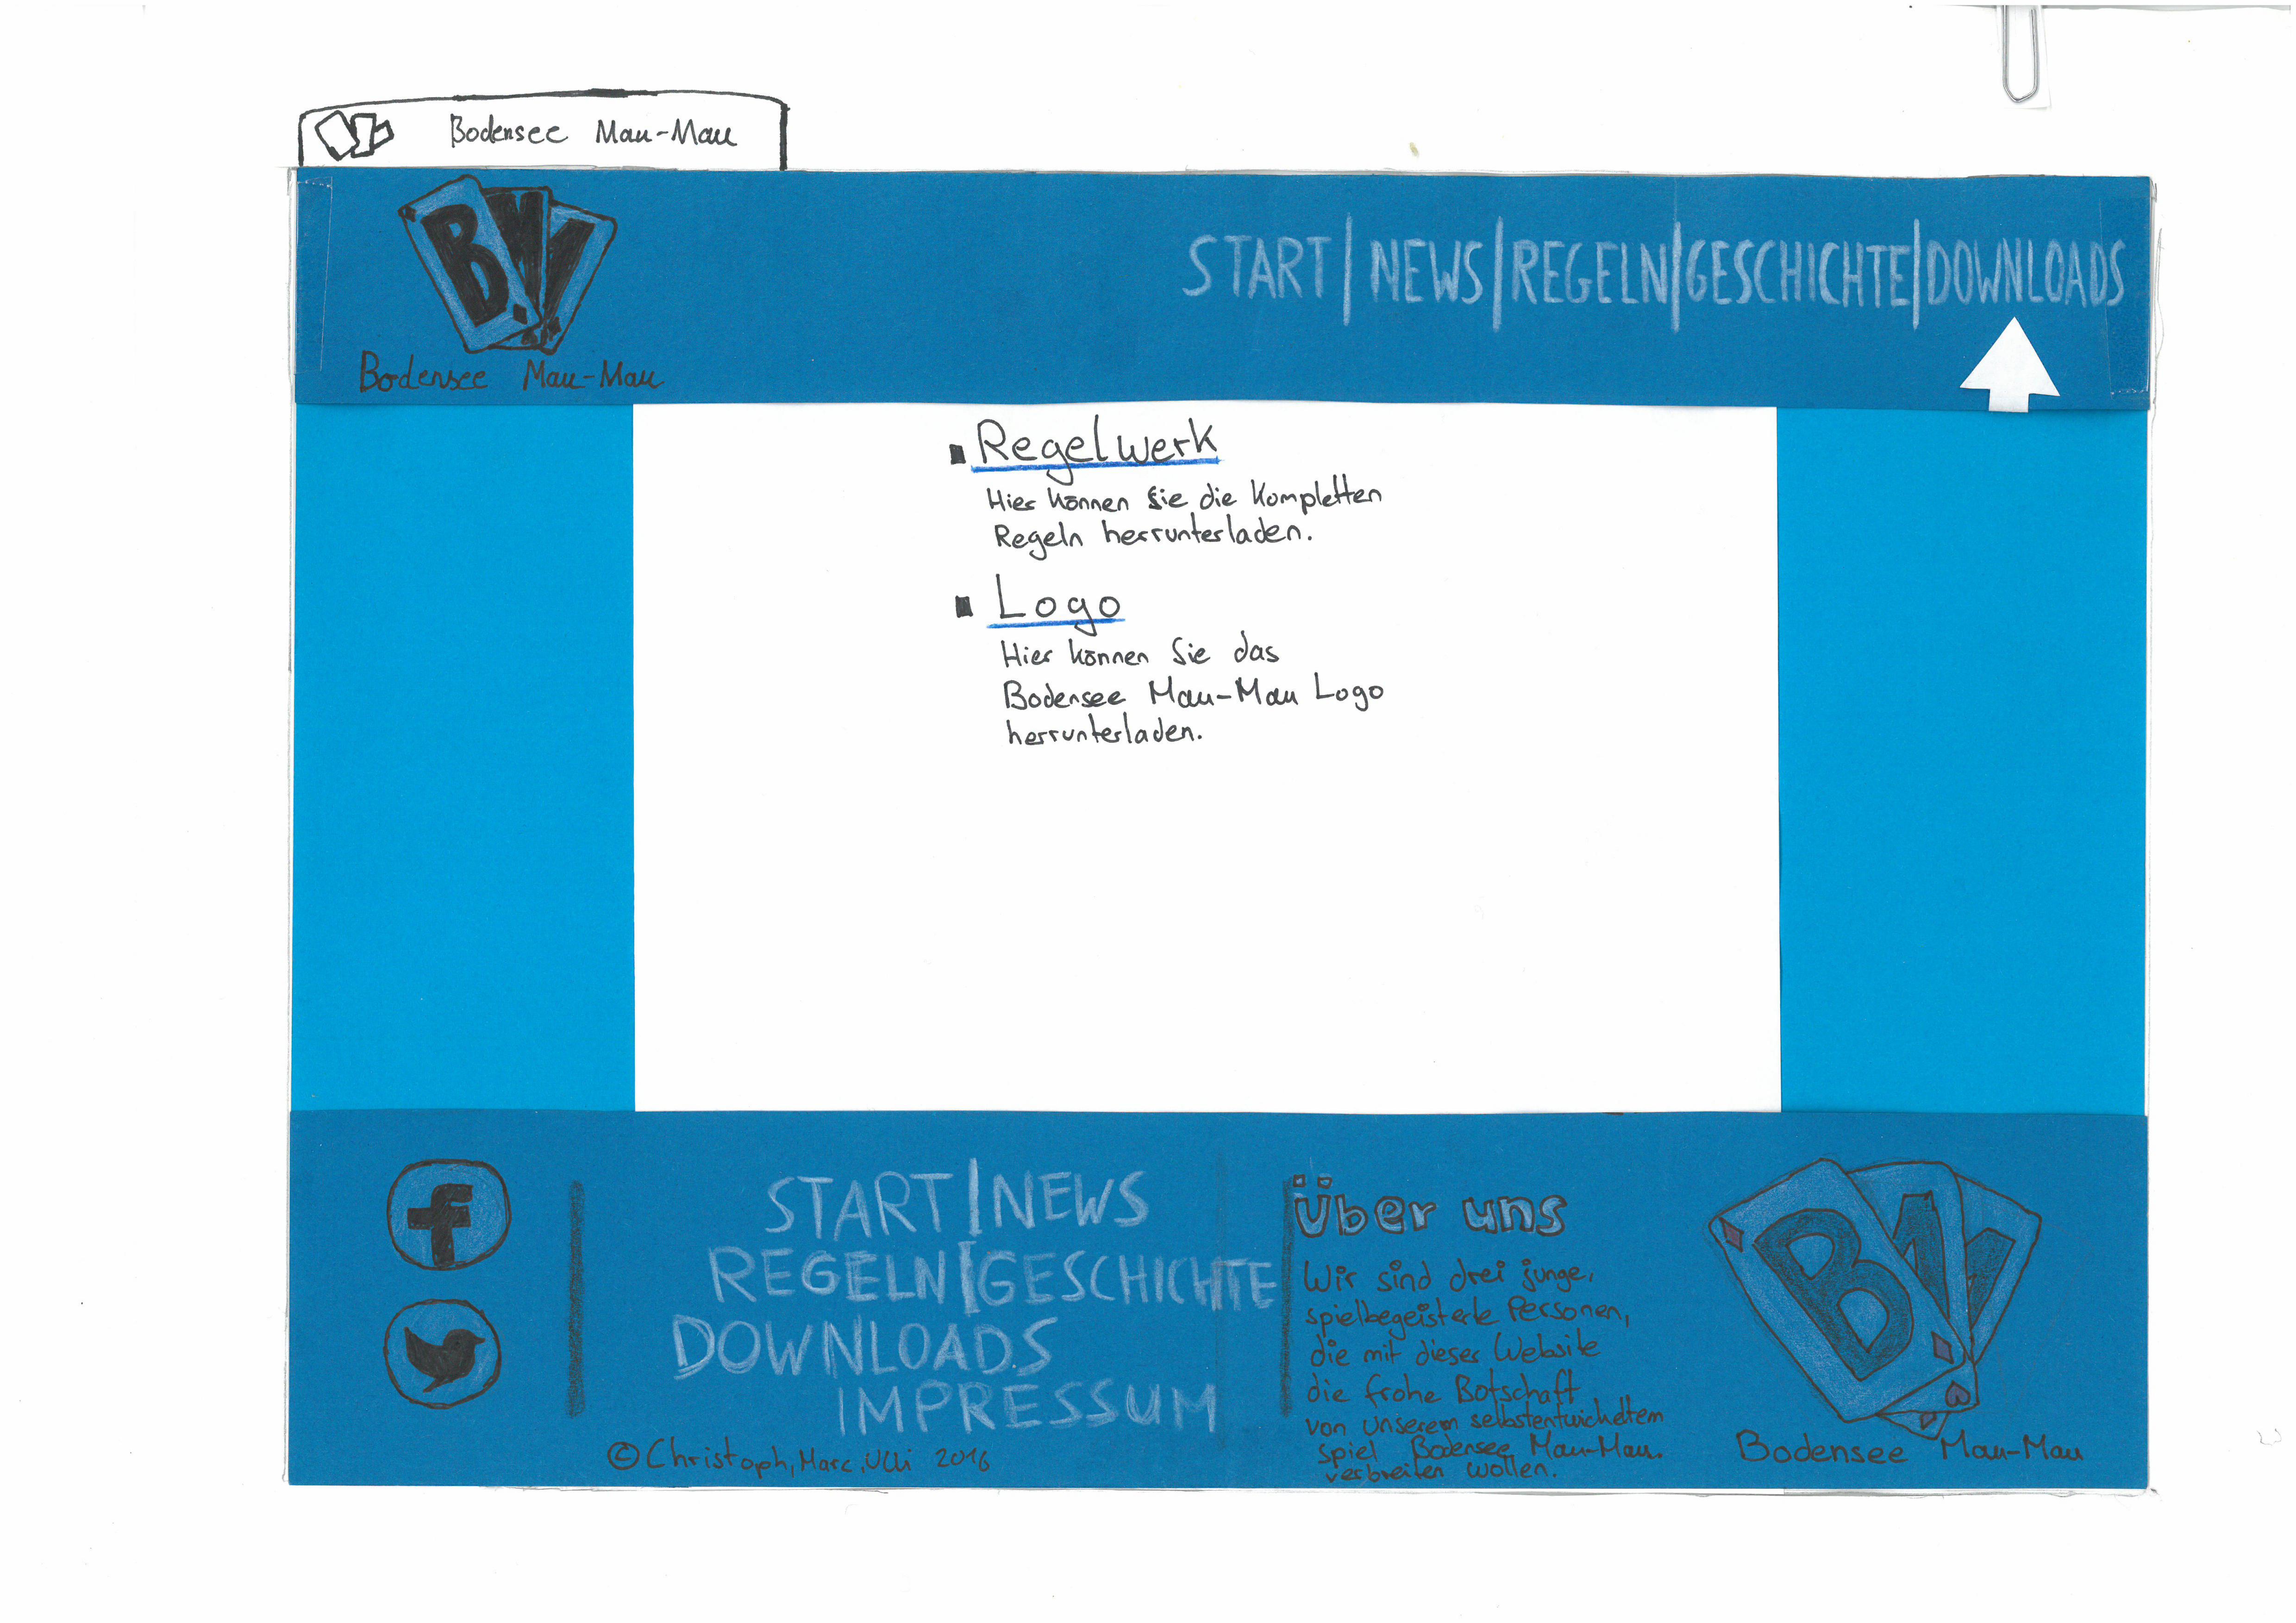 Bodensee Mau-Mau
BMM
Bodensee Mau-Mau
START | NEWS | REGELN | GESCHICHTE | DOWNLOADS
▪ Regelwerk
Hier können Sie die kompletten
Regeln herrunterladen.
▪ Logo
Hier können Sie das
Bodensee Mau-Mau Logo
herrunterladen.
f
START | NEWS
REGELN | GESCHICHTE
DOWNLOADS
IMPRESSUM
© Christoph, Marc, Ulli 2016
Über uns
Wir sind drei junge,
spielbegeisterte Personen,
die mit dieser Website
die frohe Botschaft
von unserem selbstentwickeltem
Spiel Bodensee Mau-Mau.
verbreiten wollen.
BMM
Bodensee Mau-Mau